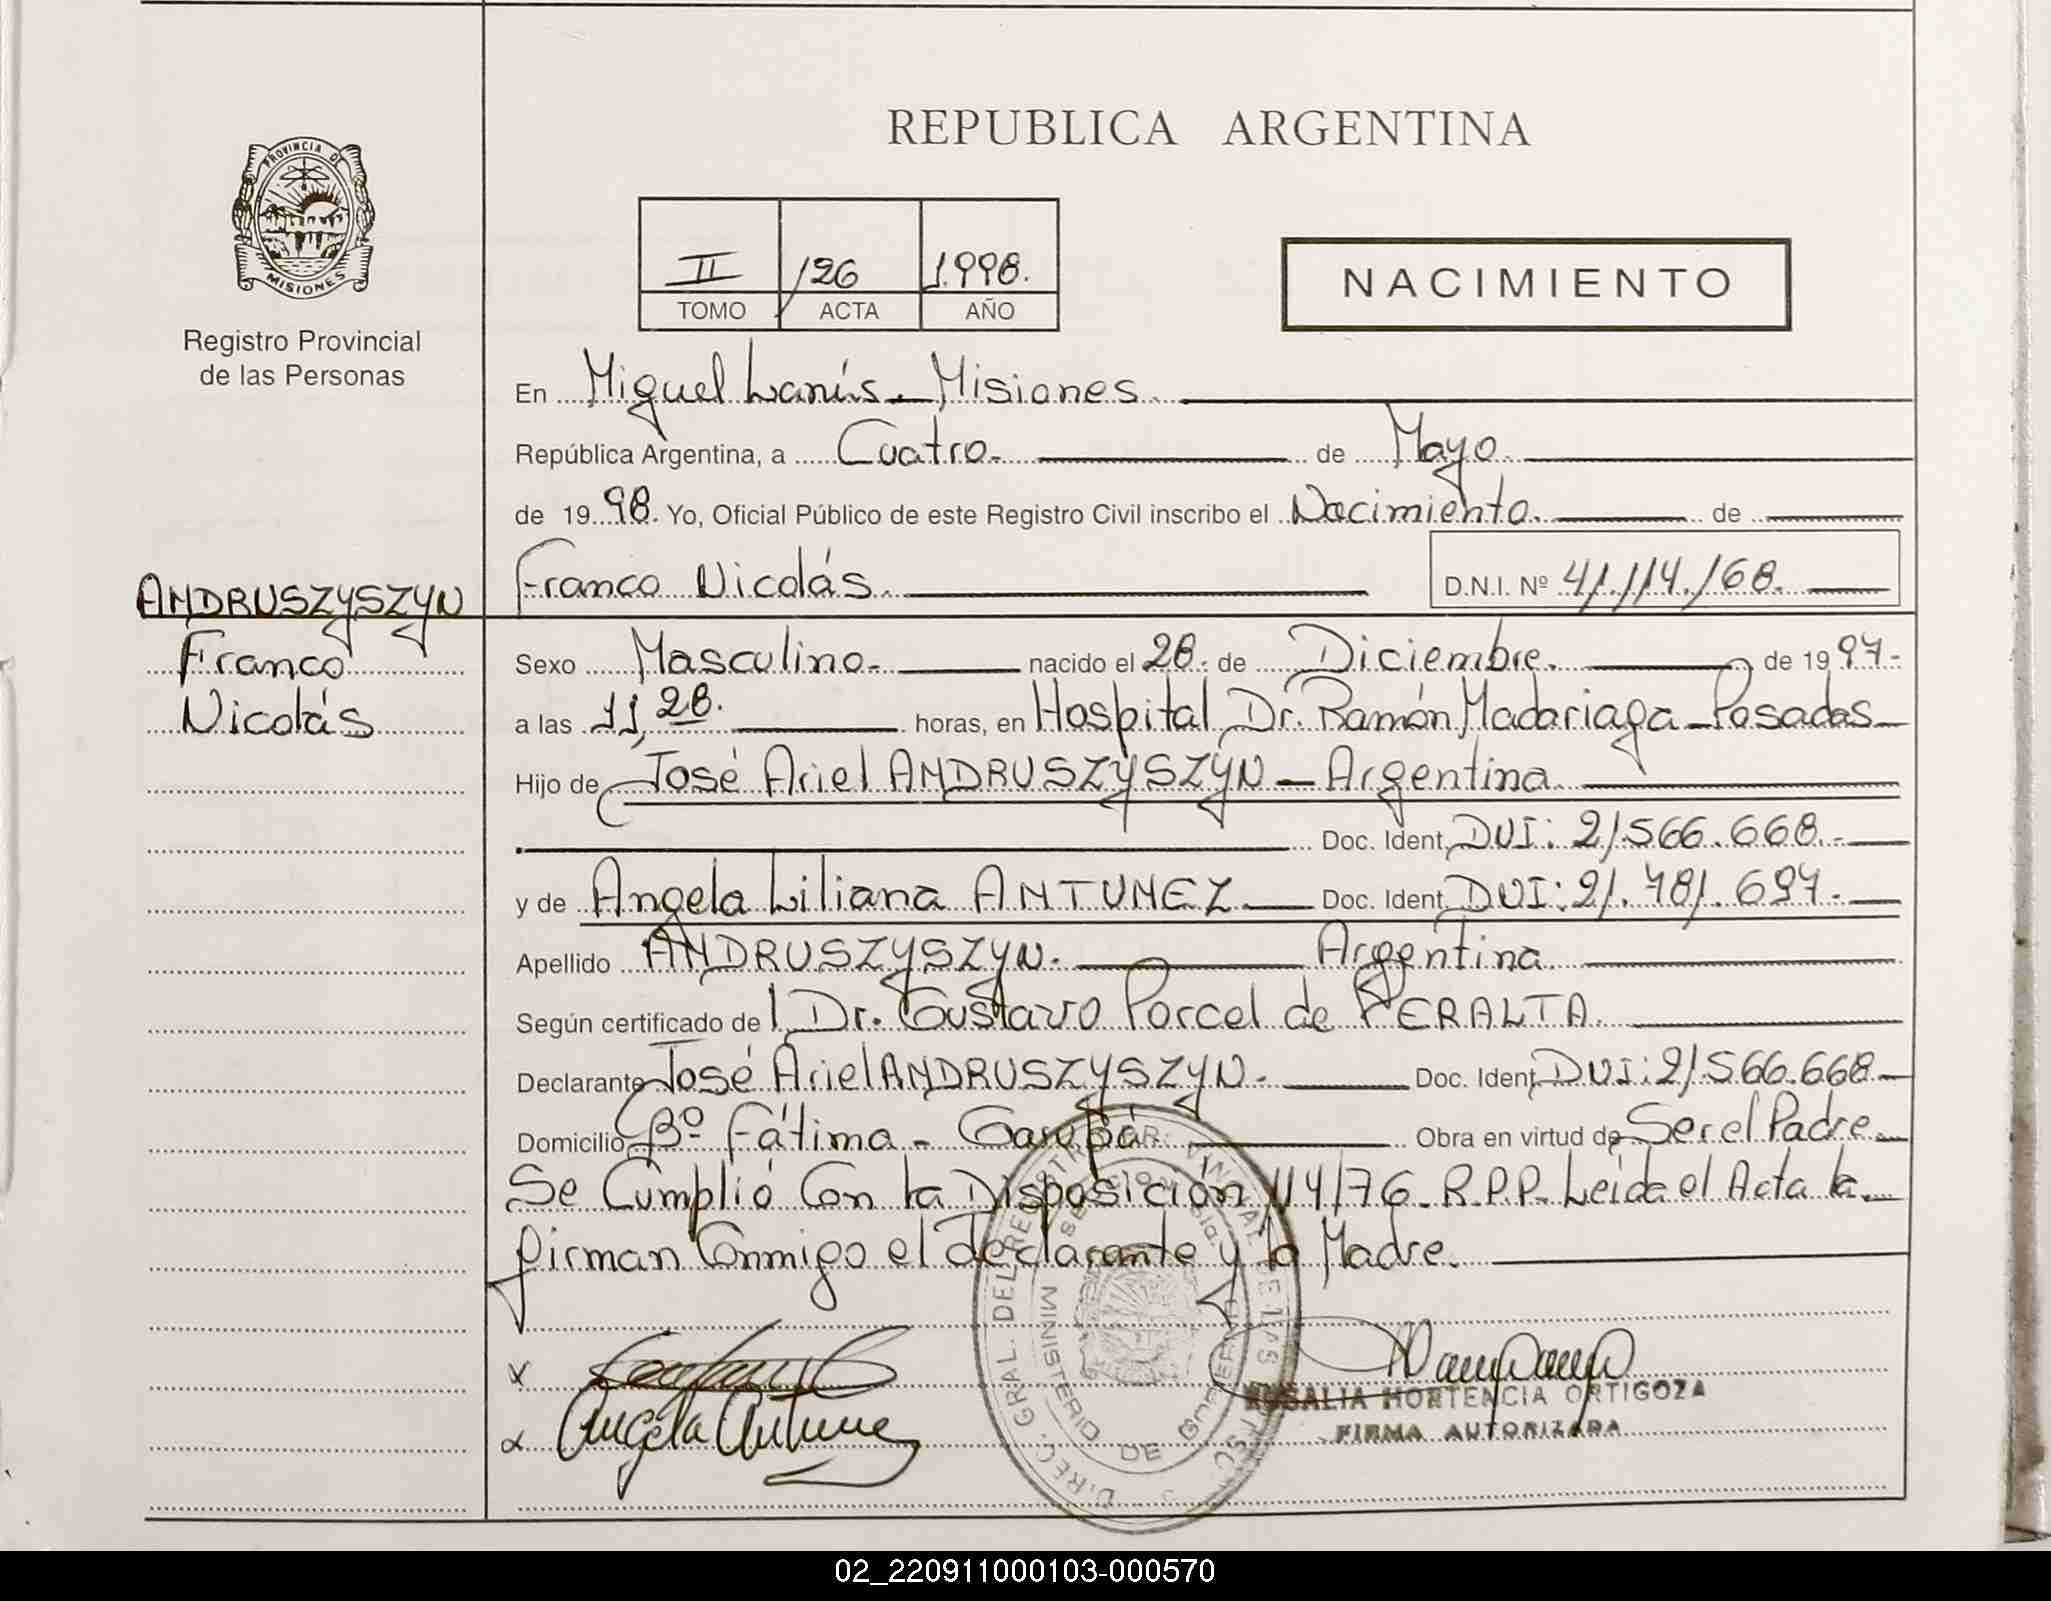 REPUBLICA ARGENTINA
PROVINCIA DE
MISIONES
Registro Provincial
de las Personas
II 126 1.998.
TOMO ACTA AÑO
NACIMIENTO
En Miguel Lanús - Misiones
República Argentina, a Cuatro. de Mayo
de 19 98. Yo, Oficial Público de este Registro Civil inscribo el Nacimiento. de
Franco Nicolás. D.N.I. Nº 41.114.168.
ANDRUSZYSZYN
Franco
Nicolás
Sexo Masculino. nacido el 28. de Diciembre. de 19 97.
a las 11,28. horas, en Hospital Dr. Ramón Madariaga - Posadas
Hijo de José Ariel ANDRUSZYSZYN - Argentina
Doc. Ident. DNI: 21.566.668.
y de Angela Liliana ANTUNEZ Doc. Ident. DNI: 21.781.697.
Apellido ANDRUSZYSZYN. Argentina
Según certificado de l Dr. Gustavo Porcel de PERALTA.
Declarante José Ariel ANDRUSZYSZYN. Doc. Ident. DNI: 21.566.668
Domicilio Bº Fátima - Garupá Obra en virtud de Ser el Padre
Se Cumplió Con la Disposición 114/76 R.P.P. Leida el Acta la
firman Conmigo el declarante y la Madre.
Angela Antunez
ROSALIA HORTENCIA ORTIGOZA
FIRMA AUTORIZADA
MINISTERIO DE GOBIERNO
02_220911000103-000570